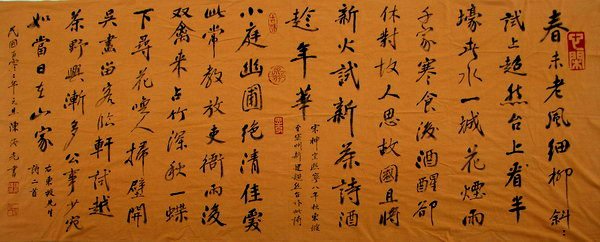 春未老風細柳斜〻
試上超然台上看半
壕春水一城花煙雨
千家寒食後酒醒卻
休對故人思故國且將
新火試新茶詩酒
趁年華
宋神宗熙寧八年秋東坡
至密州新建超然台作此詞
小庭幽圃絕清佳愛
此常教放吏衙雨後
双禽來占竹深秋一蝶
下尋花喚人掃壁開
吳畫留客臨軒試越
茶野興漸多公事少宛
如當日在山家
右東坡先生
詩一首
民國年元旦陳光書